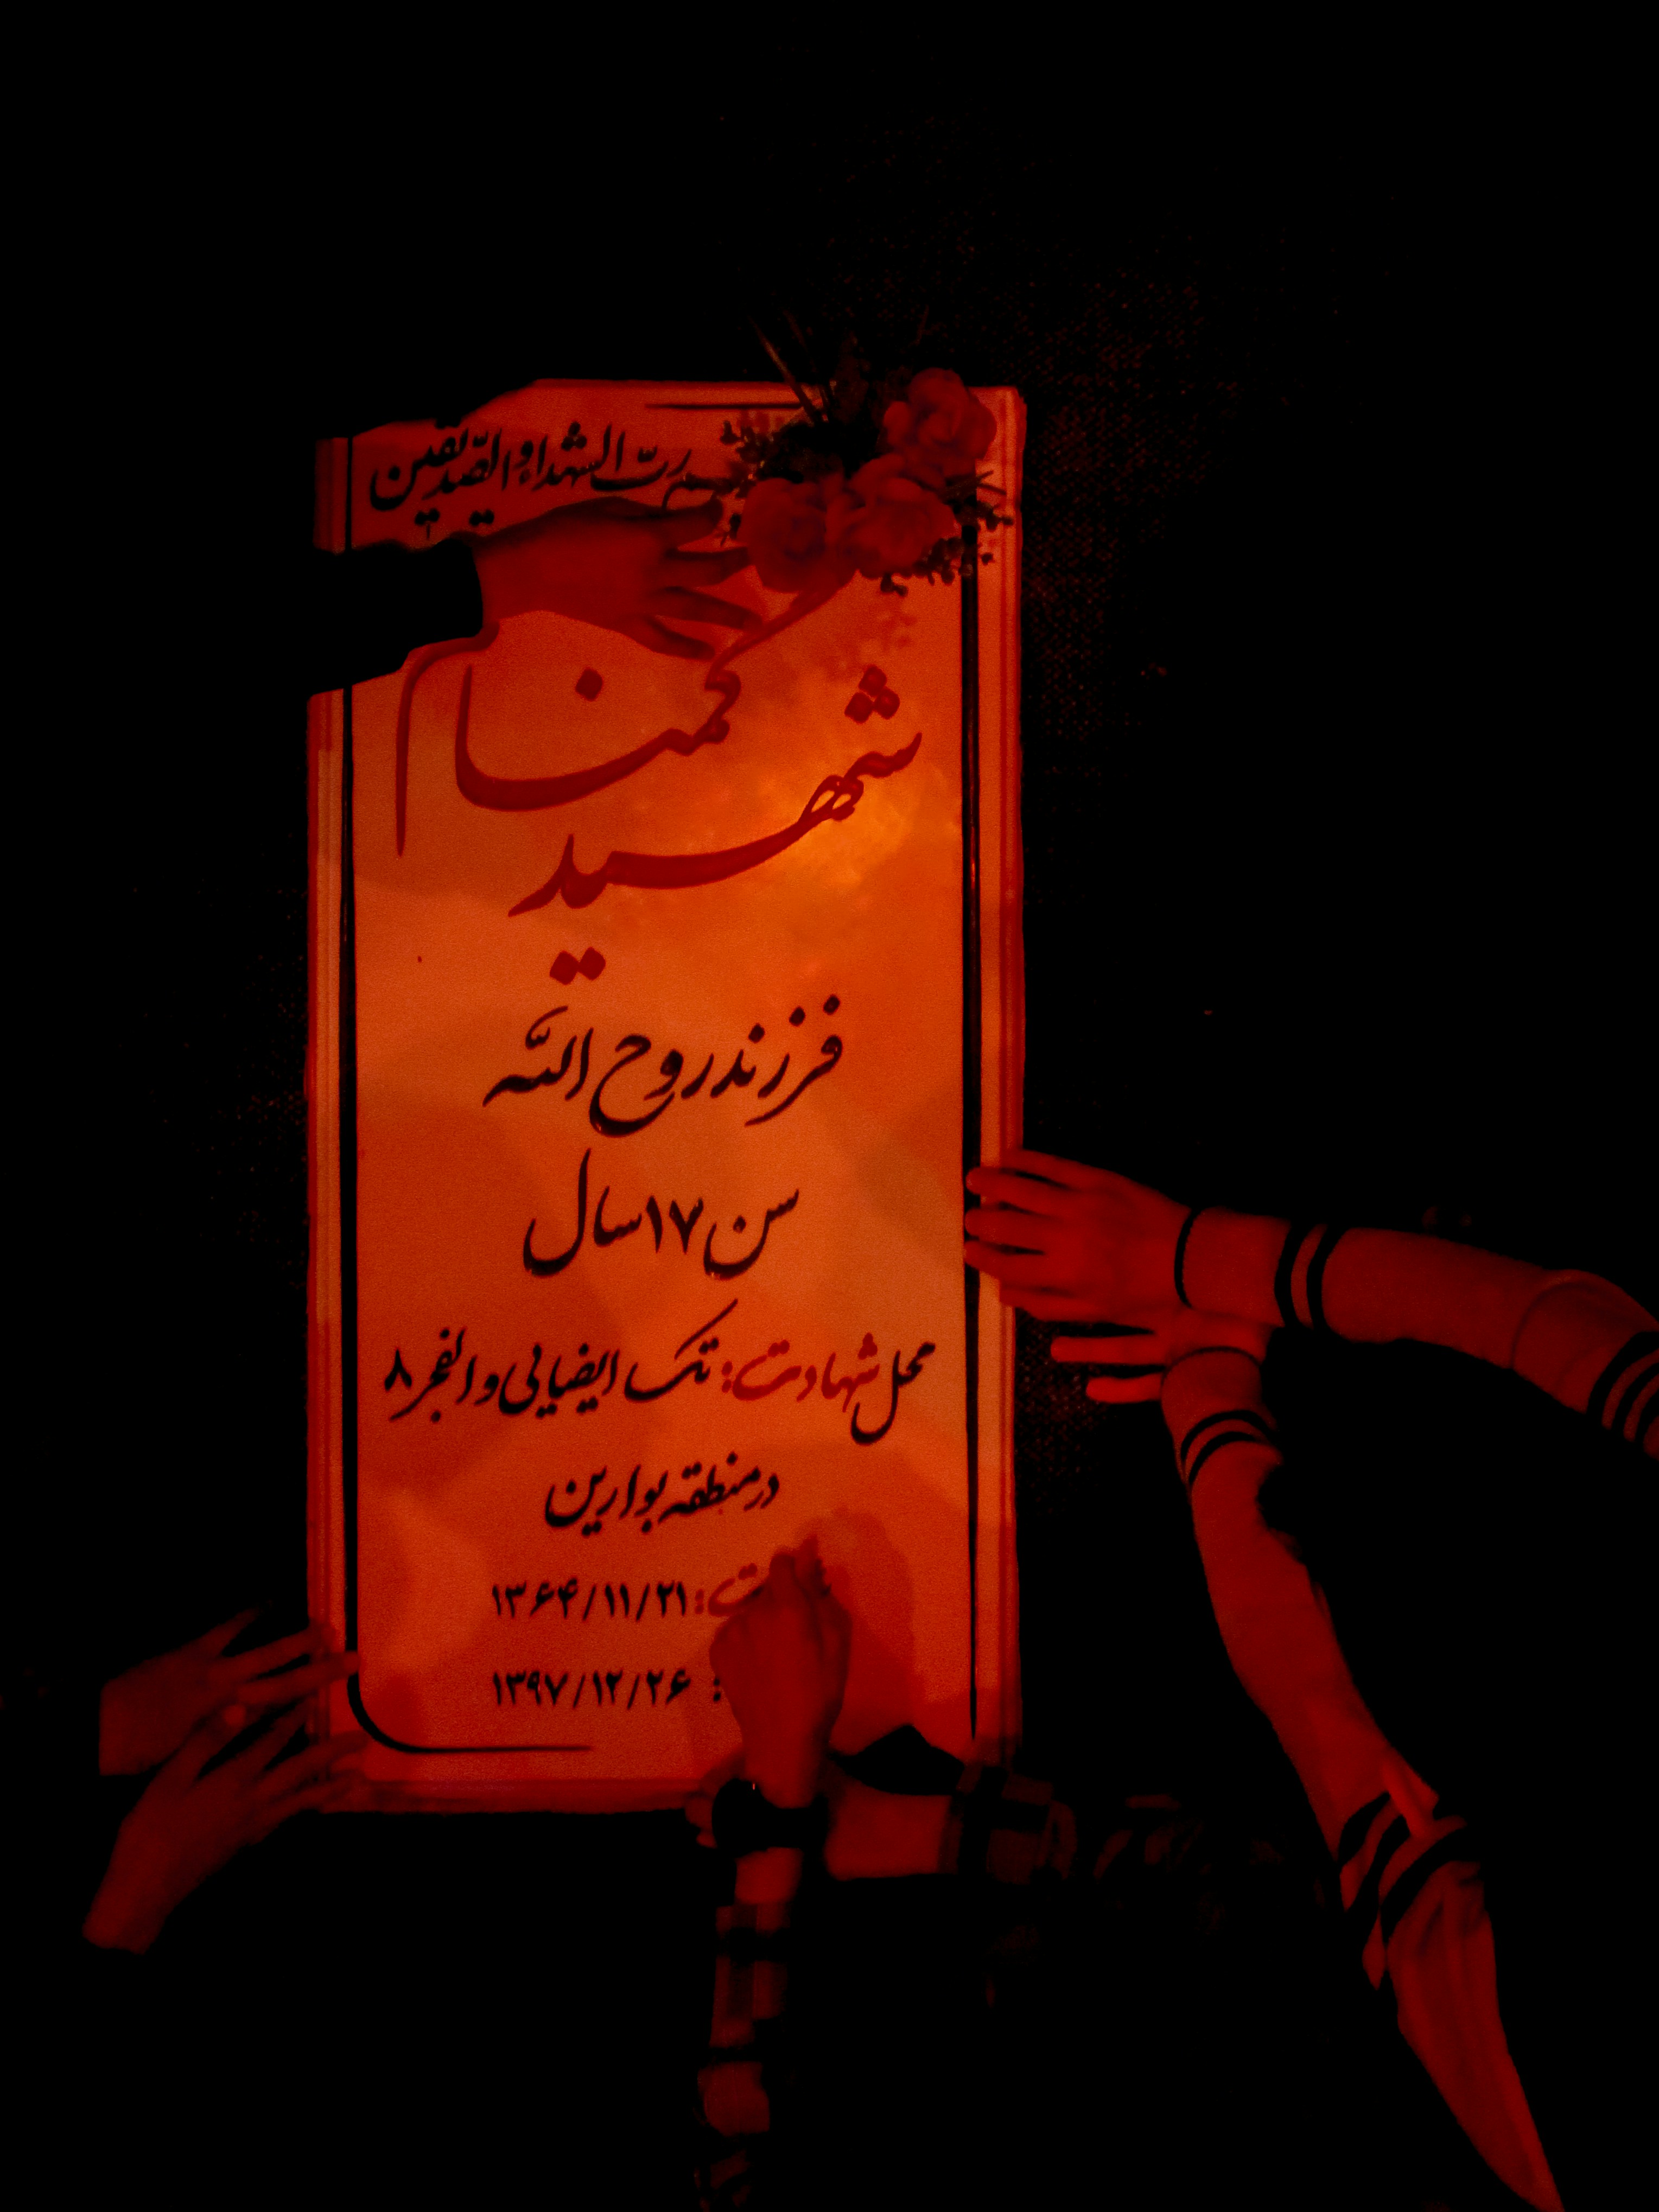 ربّ الشهداء والصّدیقین
شهید گمنام
فرزند روح اللّه
سن ۱۷ سال
محل شهادت: تک ایضیائی والفجر ۸
در منطقه بوارین
۱۳۶۴/۱۱/۲۱
۱۳۹۷/۱۲/۲۶